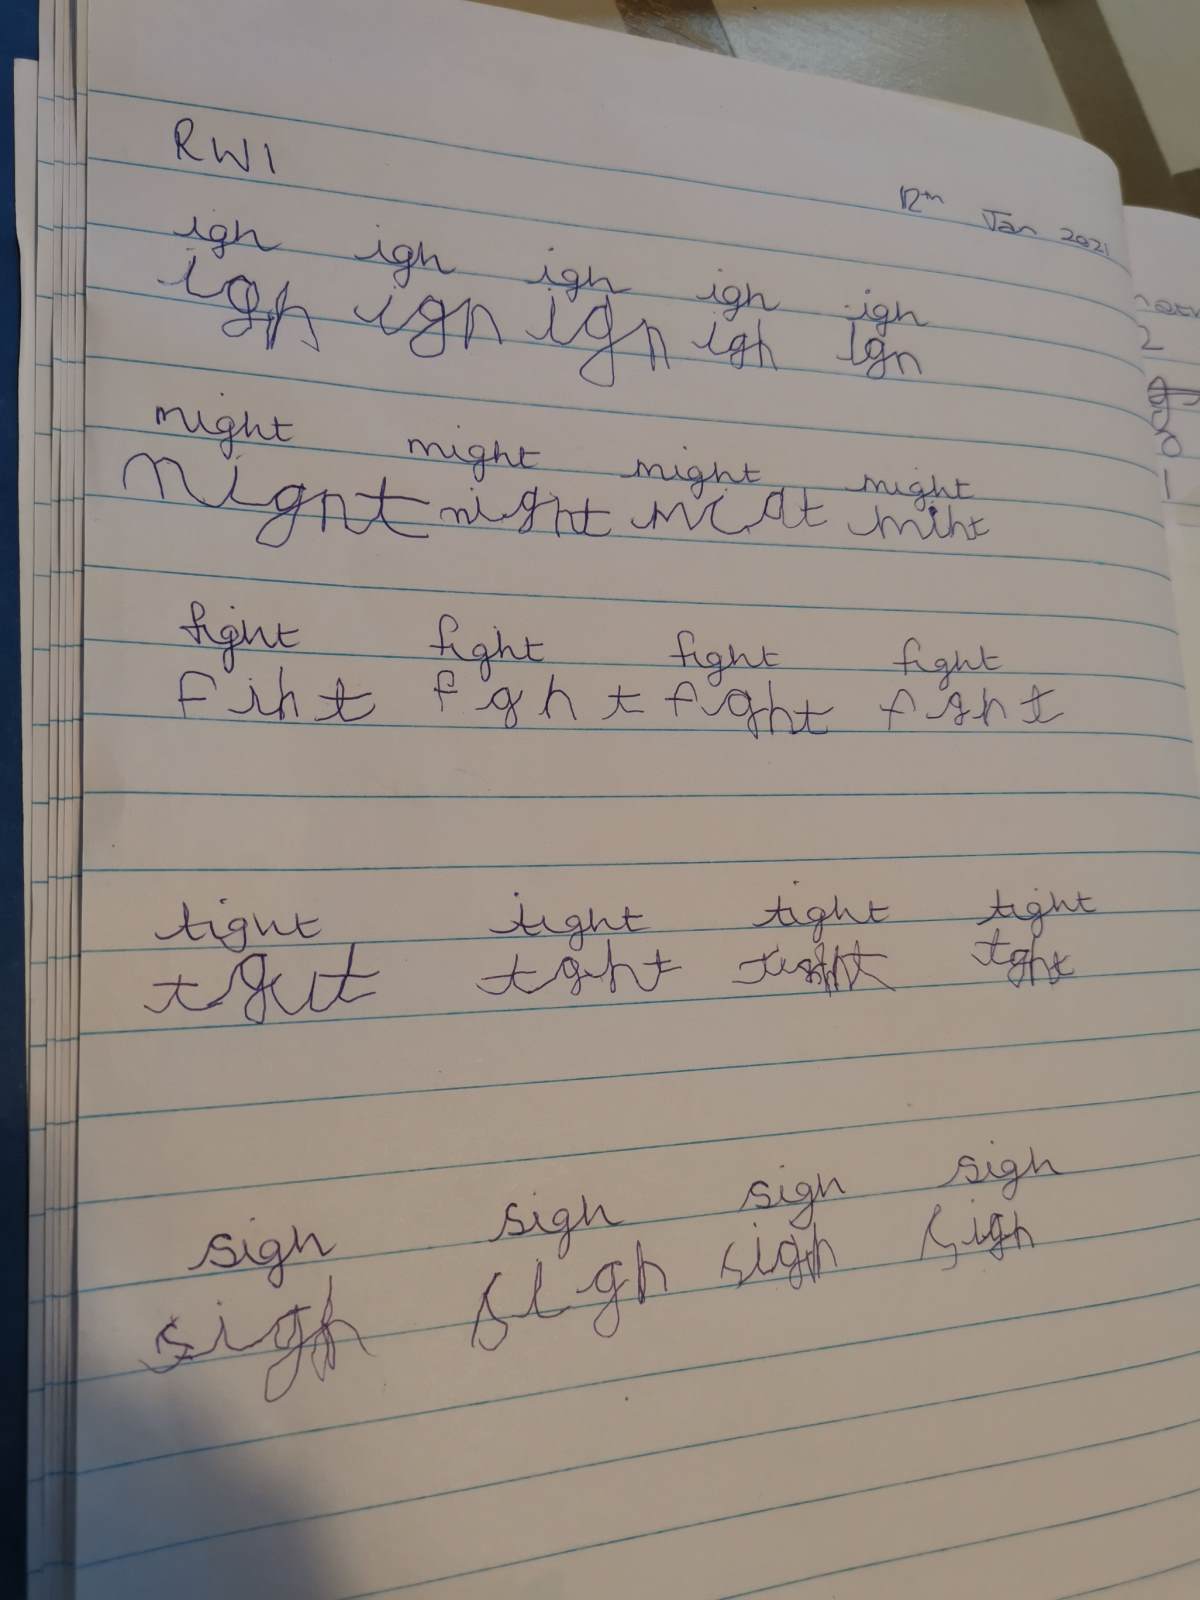 RWI
12th Jan 2021
igh igh igh igh igh
igh igh igh igh igh
might might might might
night might mi at miht
fight fight fight fight
fiht f ght fight f ght
tight tight tight tight
t gut tght tight tght
sigh sigh sigh sigh
sigh sigh sigh sigh
2
0
1